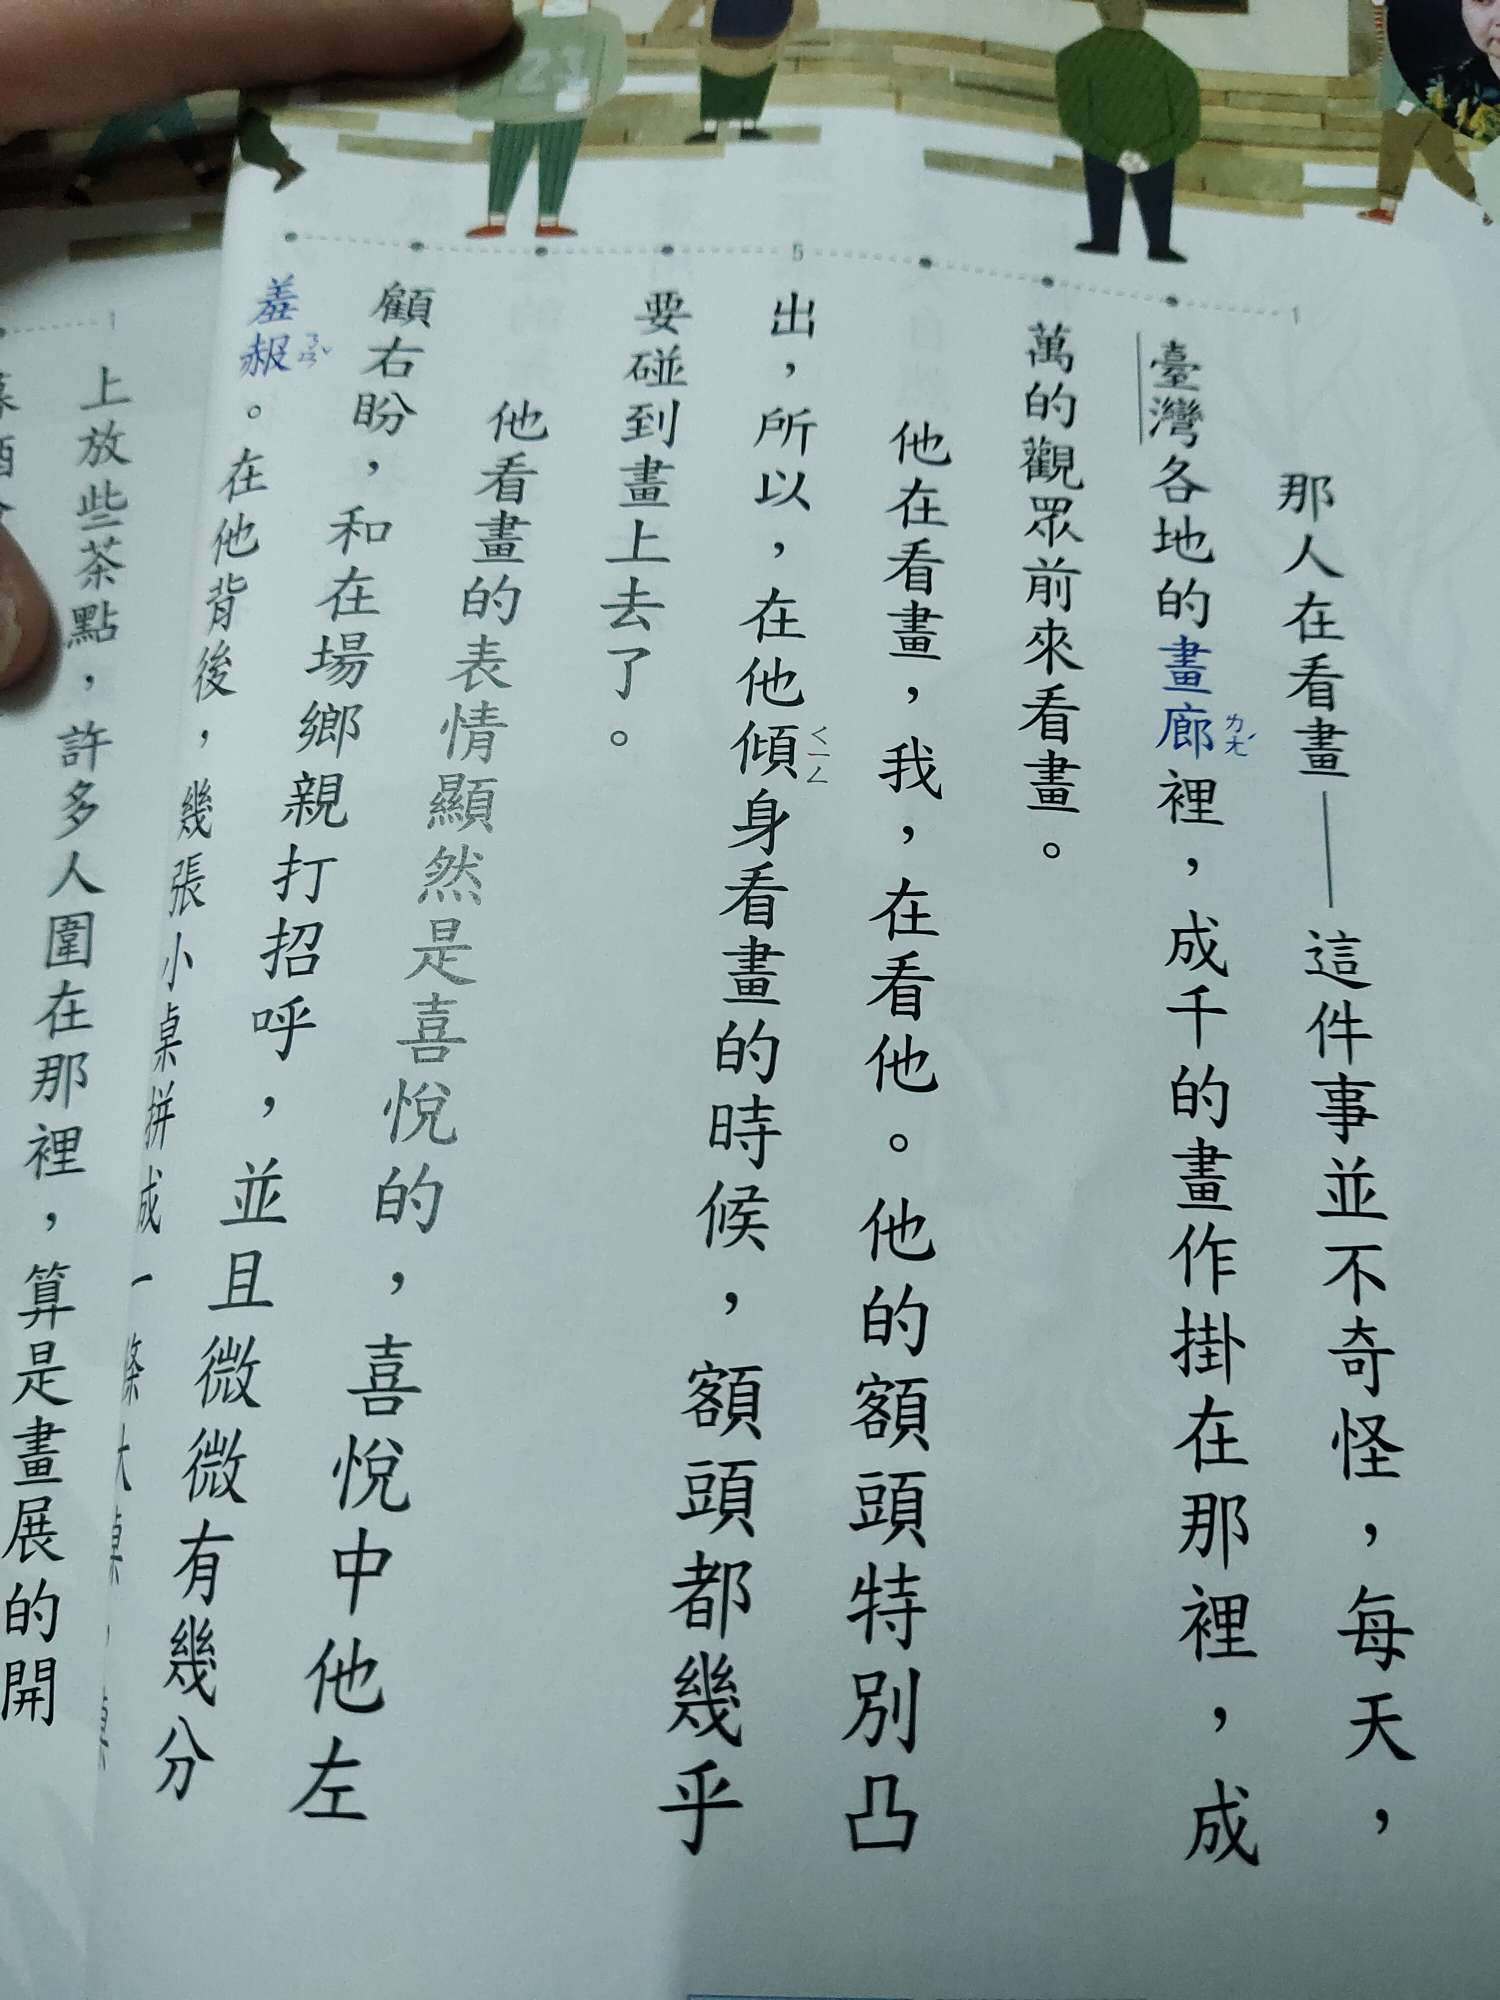 那人在看畫——這件事並不奇怪，每天，
臺灣各地的畫廊裡，成千的畫作掛在那裡，成
ㄌㄤˊ
萬的觀眾前來看畫。
他在看畫，我，在看他。他的額頭特別凸
5
出，所以，在他傾身看畫的時候，額頭都幾乎
ㄑㄧㄥ
要碰到畫上去了。
他看畫的表情顯然是喜悅的，喜悅中他左
顧右盼，和在場鄉親打招呼，並且微微有幾分
羞赧。在他背後，幾張小桌拼成一條大桌，桌
ㄋㄢˇ
1
上放些茶點，許多人圍在那裡，算是畫展的開
幕酒會
1